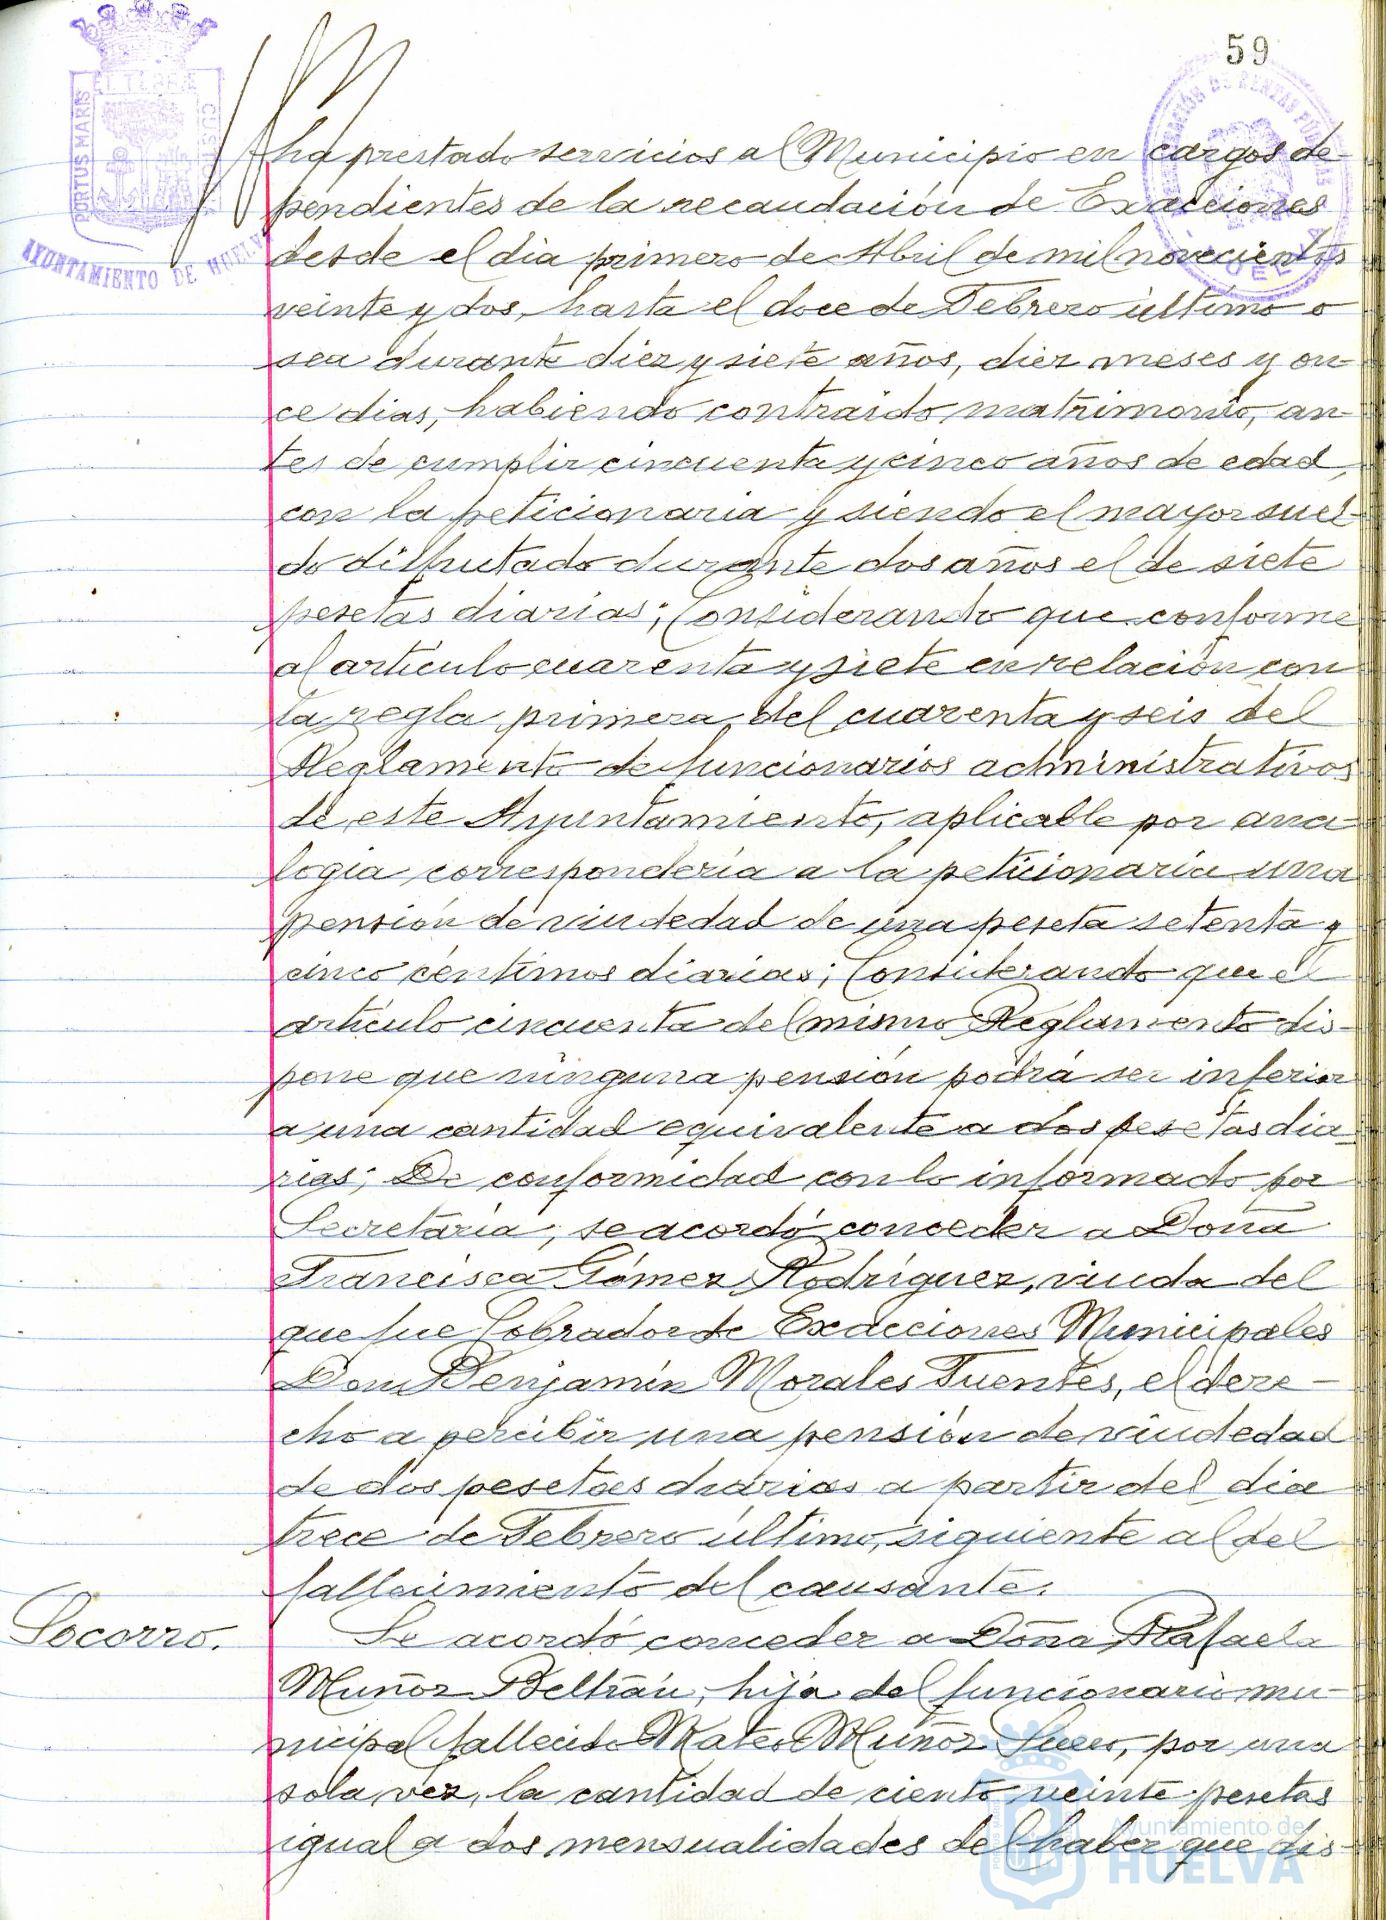 59
PORTUS MARIS ET TERRÆ CUSTODIA
AYUNTAMIENTO DE HUELVA
DE RENTAS PUBLICAS
HUELVA
ha prestado servicios al Municipio en cargos de-
pendientes de la recaudación de Exacciones
desde el dia primero de Abril de mil novecientos
veinte y dos, hasta el doce de Febrero último o
sea durante diez y siete años, diez meses y on-
ce dias, habiendo contraido matrimonio, an-
tes de cumplir cincuenta y cinco años de edad,
con la peticionaria y siendo el mayor suel-
do disfrutado durante dos años el de siete
pesetas diarias; Considerando que conforme
al artículo cuarenta y siete en relación con
la regla primera del cuarenta y seis del
Reglamento de funcionarios administrativos
de este Ayuntamiento, aplicable por ana-
logia correspondería a la peticionaria una
pensión de viudedad de una peseta setenta y
cinco céntimos diarias; Considerando que el
artículo cincuenta del mismo Reglamento dis-
pone que ninguna pensión podrá ser inferior
a una cantidad equivalente a dos pesetas dia-
rias; De conformidad con lo informado por
Secretaría, se acordó conceder a Doña
Francisca Gómez Rodríguez, viuda del
que fue Cobrador de Exacciones Municipales
Don Benjamín Morales Fuentes, el dere-
cho a percibir una pensión de viudedad
de dos pesetas diarias a partir del dia
trece de Febrero último, siguiente al del
fallecimiento del causante.
Socorro.
Se acordó conceder a Doña Rafaela
Muñoz Beltrán, hija del funcionario mu-
nicipal fallecido Mateo Muñoz, por una
sola vez, la cantidad de ciento veinte pesetas
igual a dos mensualidades del haber que dis-
Ayuntamiento de
HUELVA